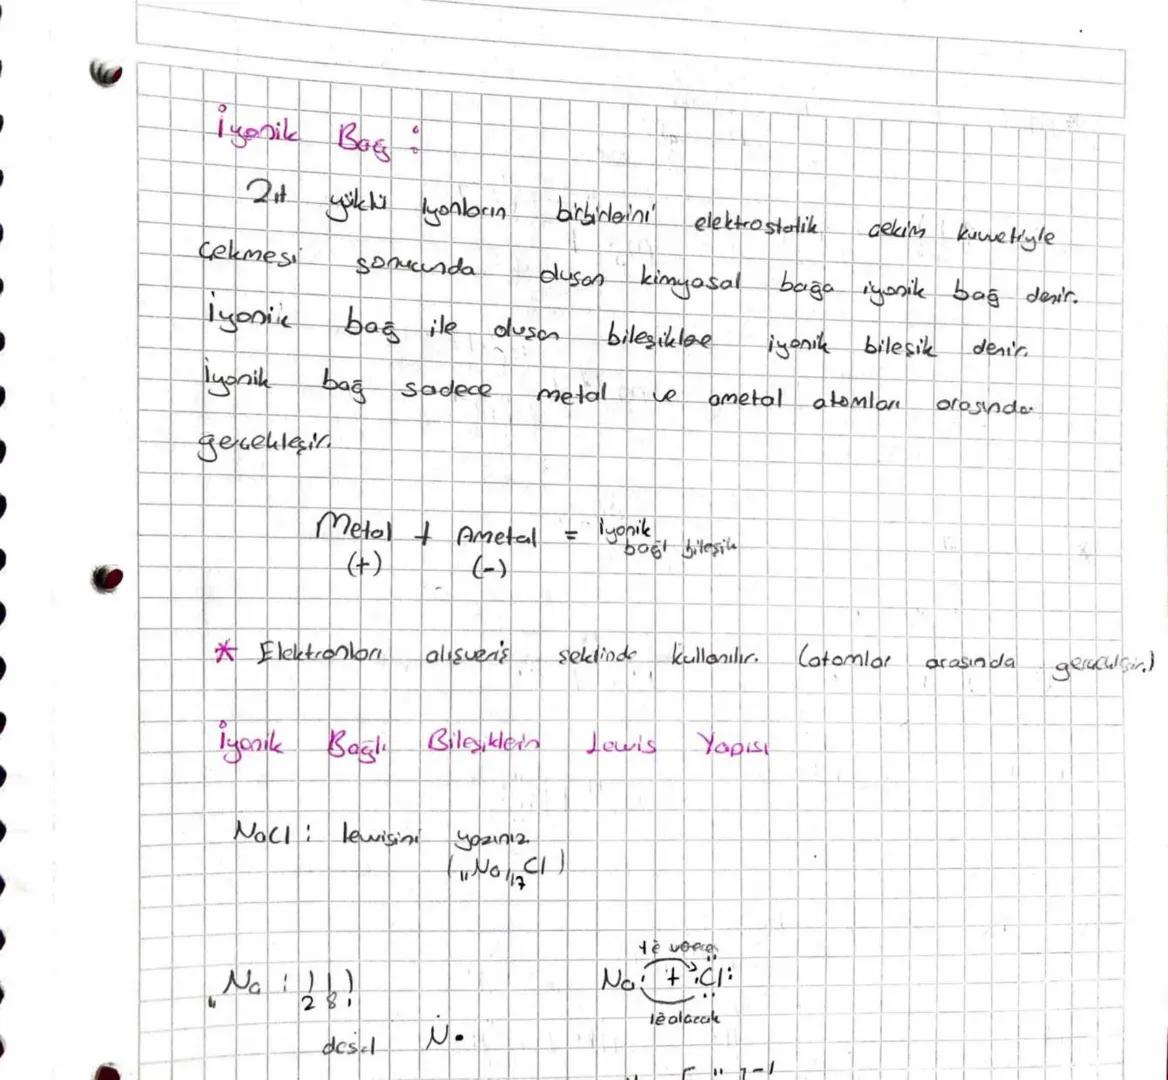 İyonik Bağ :
Zıt yüklü iyonların birbirlerini elektrostatik çekim kuvvetiyle
çekmesi sonucunda oluşan kimyasal bağa iyonik bağ denir.
İyonik bağ ile oluşan bileşiklere iyonik bileşik denir.
İyonik bağ sadece metal ve ametal atomları arasında
gerçekleşir.
Metal + Ametal = İyonik
bağlı bileşik
(+) (-)
* Elektronları alışveriş şeklinde kullanılır. (atomlar arasında gerçekleşir.)
İyonik Bağlı Bileşiklerin Lewis Yapısı
NaCl : lewisini yazınız
(₁₁Na, ₁₇Cl)
1e verecek
₁₁Na : ) ) ) Na· + :Cl:
2 8 1
1e alacak
N·